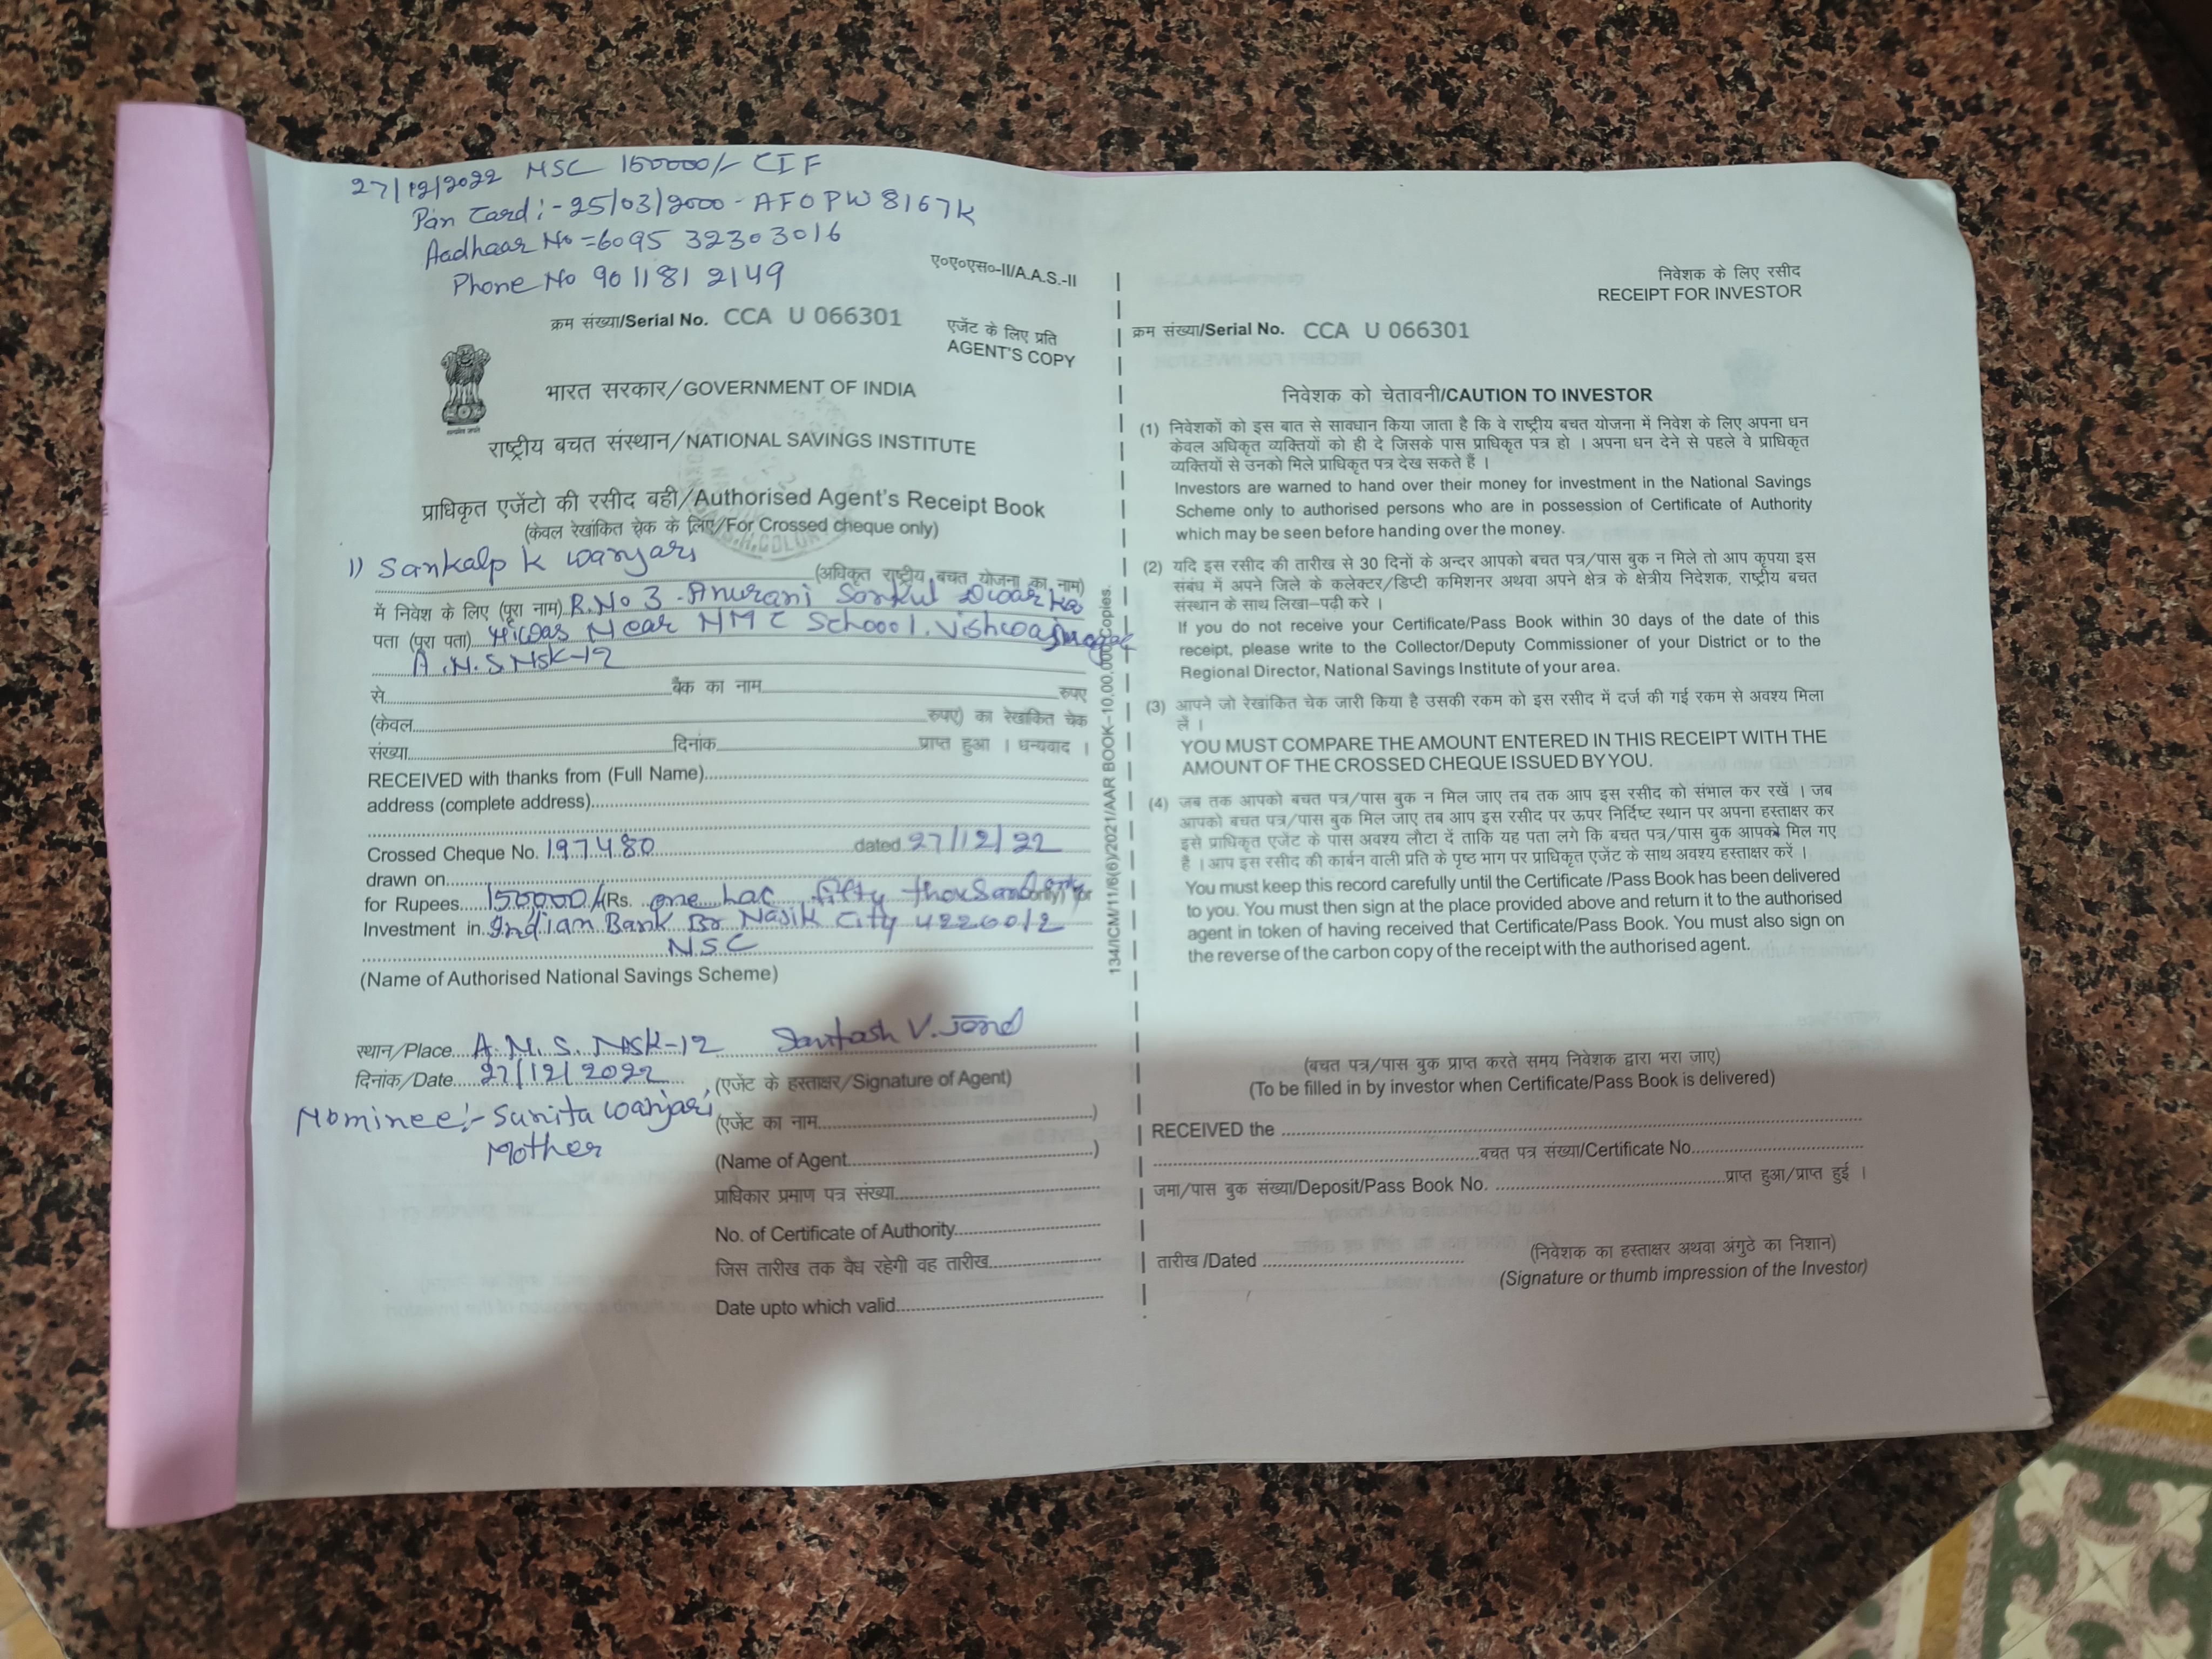 27/12/2022 NSC 150000/- CIF
Pan Card :- 25/03/2000 - AFOPW8167K
Aadhaar No = 6095 32303016
Phone No 9011812149
ए०ए०एस०-II/A.A.S.-II
क्रम संख्या/Serial No. CCA U 066301
एजेंट के लिए प्रति
AGENT'S COPY
भारत सरकार/GOVERNMENT OF INDIA
राष्ट्रीय बचत संस्थान/NATIONAL SAVINGS INSTITUTE
प्राधिकृत एजेंटो की रसीद बही/Authorised Agent's Receipt Book
(केवल रेखांकित चेक के लिए/For Crossed cheque only)
1) Sankalp K Wanjari
(अधिकृत राष्ट्रीय बचत योजना का नाम)
में निवेश के लिए (पूरा नाम) R.No 3 - Anurani Sankul Dwarka
पता (पूरा पता) Niwas Near NMC School. Vishwasnagar
A.N.S. NSK-12
से बैंक का नाम रुपए
(केवल रुपए) का रेखांकित चेक
संख्या दिनांक प्राप्त हुआ । धन्यवाद ।
RECEIVED with thanks from (Full Name)
address (complete address)
Crossed Cheque No. 197480 dated 27/12/22
drawn on
for Rupees 150000/- (Rs. one Lac fifty thousand only only) for
Investment in Indian Bank Br Nasik City 4226012
NSC
(Name of Authorised National Savings Scheme)
स्थान/Place A.N.S. NSK-12 Santosh V.
दिनांक/Date 27/12/2022 (एजेंट के हस्ताक्षर/Signature of Agent)
Nominee :- Sunita Wanjari
Mother
(एजेंट का नाम )
(Name of Agent )
प्राधिकार प्रमाण पत्र संख्या
No. of Certificate of Authority
जिस तारीख तक वैध रहेगी वह तारीख
Date upto which valid
134/ICM/11/6(6)/2021/AAR BOOK-10,00,000 Copies.
निवेशक के लिए रसीद
RECEIPT FOR INVESTOR
क्रम संख्या/Serial No. CCA U 066301
निवेशक को चेतावनी/CAUTION TO INVESTOR
(1) निवेशकों को इस बात से सावधान किया जाता है कि वे राष्ट्रीय बचत योजना में निवेश के लिए अपना धन
केवल अधिकृत व्यक्तियों को ही दे जिसके पास प्राधिकृत पत्र हो । अपना धन देने से पहले वे प्राधिकृत
व्यक्तियों से उनको मिले प्राधिकृत पत्र देख सकते हैं ।
Investors are warned to hand over their money for investment in the National Savings
Scheme only to authorised persons who are in possession of Certificate of Authority
which may be seen before handing over the money.
(2) यदि इस रसीद की तारीख से 30 दिनों के अन्दर आपको बचत पत्र/पास बुक न मिले तो आप कृपया इस
संबंध में अपने जिले के कलेक्टर/डिप्टी कमिशनर अथवा अपने क्षेत्र के क्षेत्रीय निदेशक, राष्ट्रीय बचत
संस्थान के साथ लिखा-पढ़ी करे ।
If you do not receive your Certificate/Pass Book within 30 days of the date of this
receipt, please write to the Collector/Deputy Commissioner of your District or to the
Regional Director, National Savings Institute of your area.
(3) आपने जो रेखांकित चेक जारी किया है उसकी रकम को इस रसीद में दर्ज की गई रकम से अवश्य मिला
लें ।
YOU MUST COMPARE THE AMOUNT ENTERED IN THIS RECEIPT WITH THE
AMOUNT OF THE CROSSED CHEQUE ISSUED BY YOU.
(4) जब तक आपको बचत पत्र/पास बुक न मिल जाए तब तक आप इस रसीद को संभाल कर रखें । जब
आपको बचत पत्र/पास बुक मिल जाए तब आप इस रसीद पर ऊपर निर्दिष्ट स्थान पर अपना हस्ताक्षर कर
इसे प्राधिकृत एजेंट के पास अवश्य लौटा दें ताकि यह पता लगे कि बचत पत्र/पास बुक आपको मिल गए
है । आप इस रसीद की कार्बन वाली प्रति के पृष्ठ भाग पर प्राधिकृत एजेंट के साथ अवश्य हस्ताक्षर करें ।
You must keep this record carefully until the Certificate /Pass Book has been delivered
to you. You must then sign at the place provided above and return it to the authorised
agent in token of having received that Certificate/Pass Book. You must also sign on
the reverse of the carbon copy of the receipt with the authorised agent.
(बचत पत्र/पास बुक प्राप्त करते समय निवेशक द्वारा भरा जाए)
(To be filled in by investor when Certificate/Pass Book is delivered)
RECEIVED the
बचत पत्र संख्या/Certificate No.
जमा/पास बुक संख्या/Deposit/Pass Book No. प्राप्त हुआ/प्राप्त हुई ।
तारीख /Dated (निवेशक का हस्ताक्षर अथवा अंगुठे का निशान)
(Signature or thumb impression of the Investor)